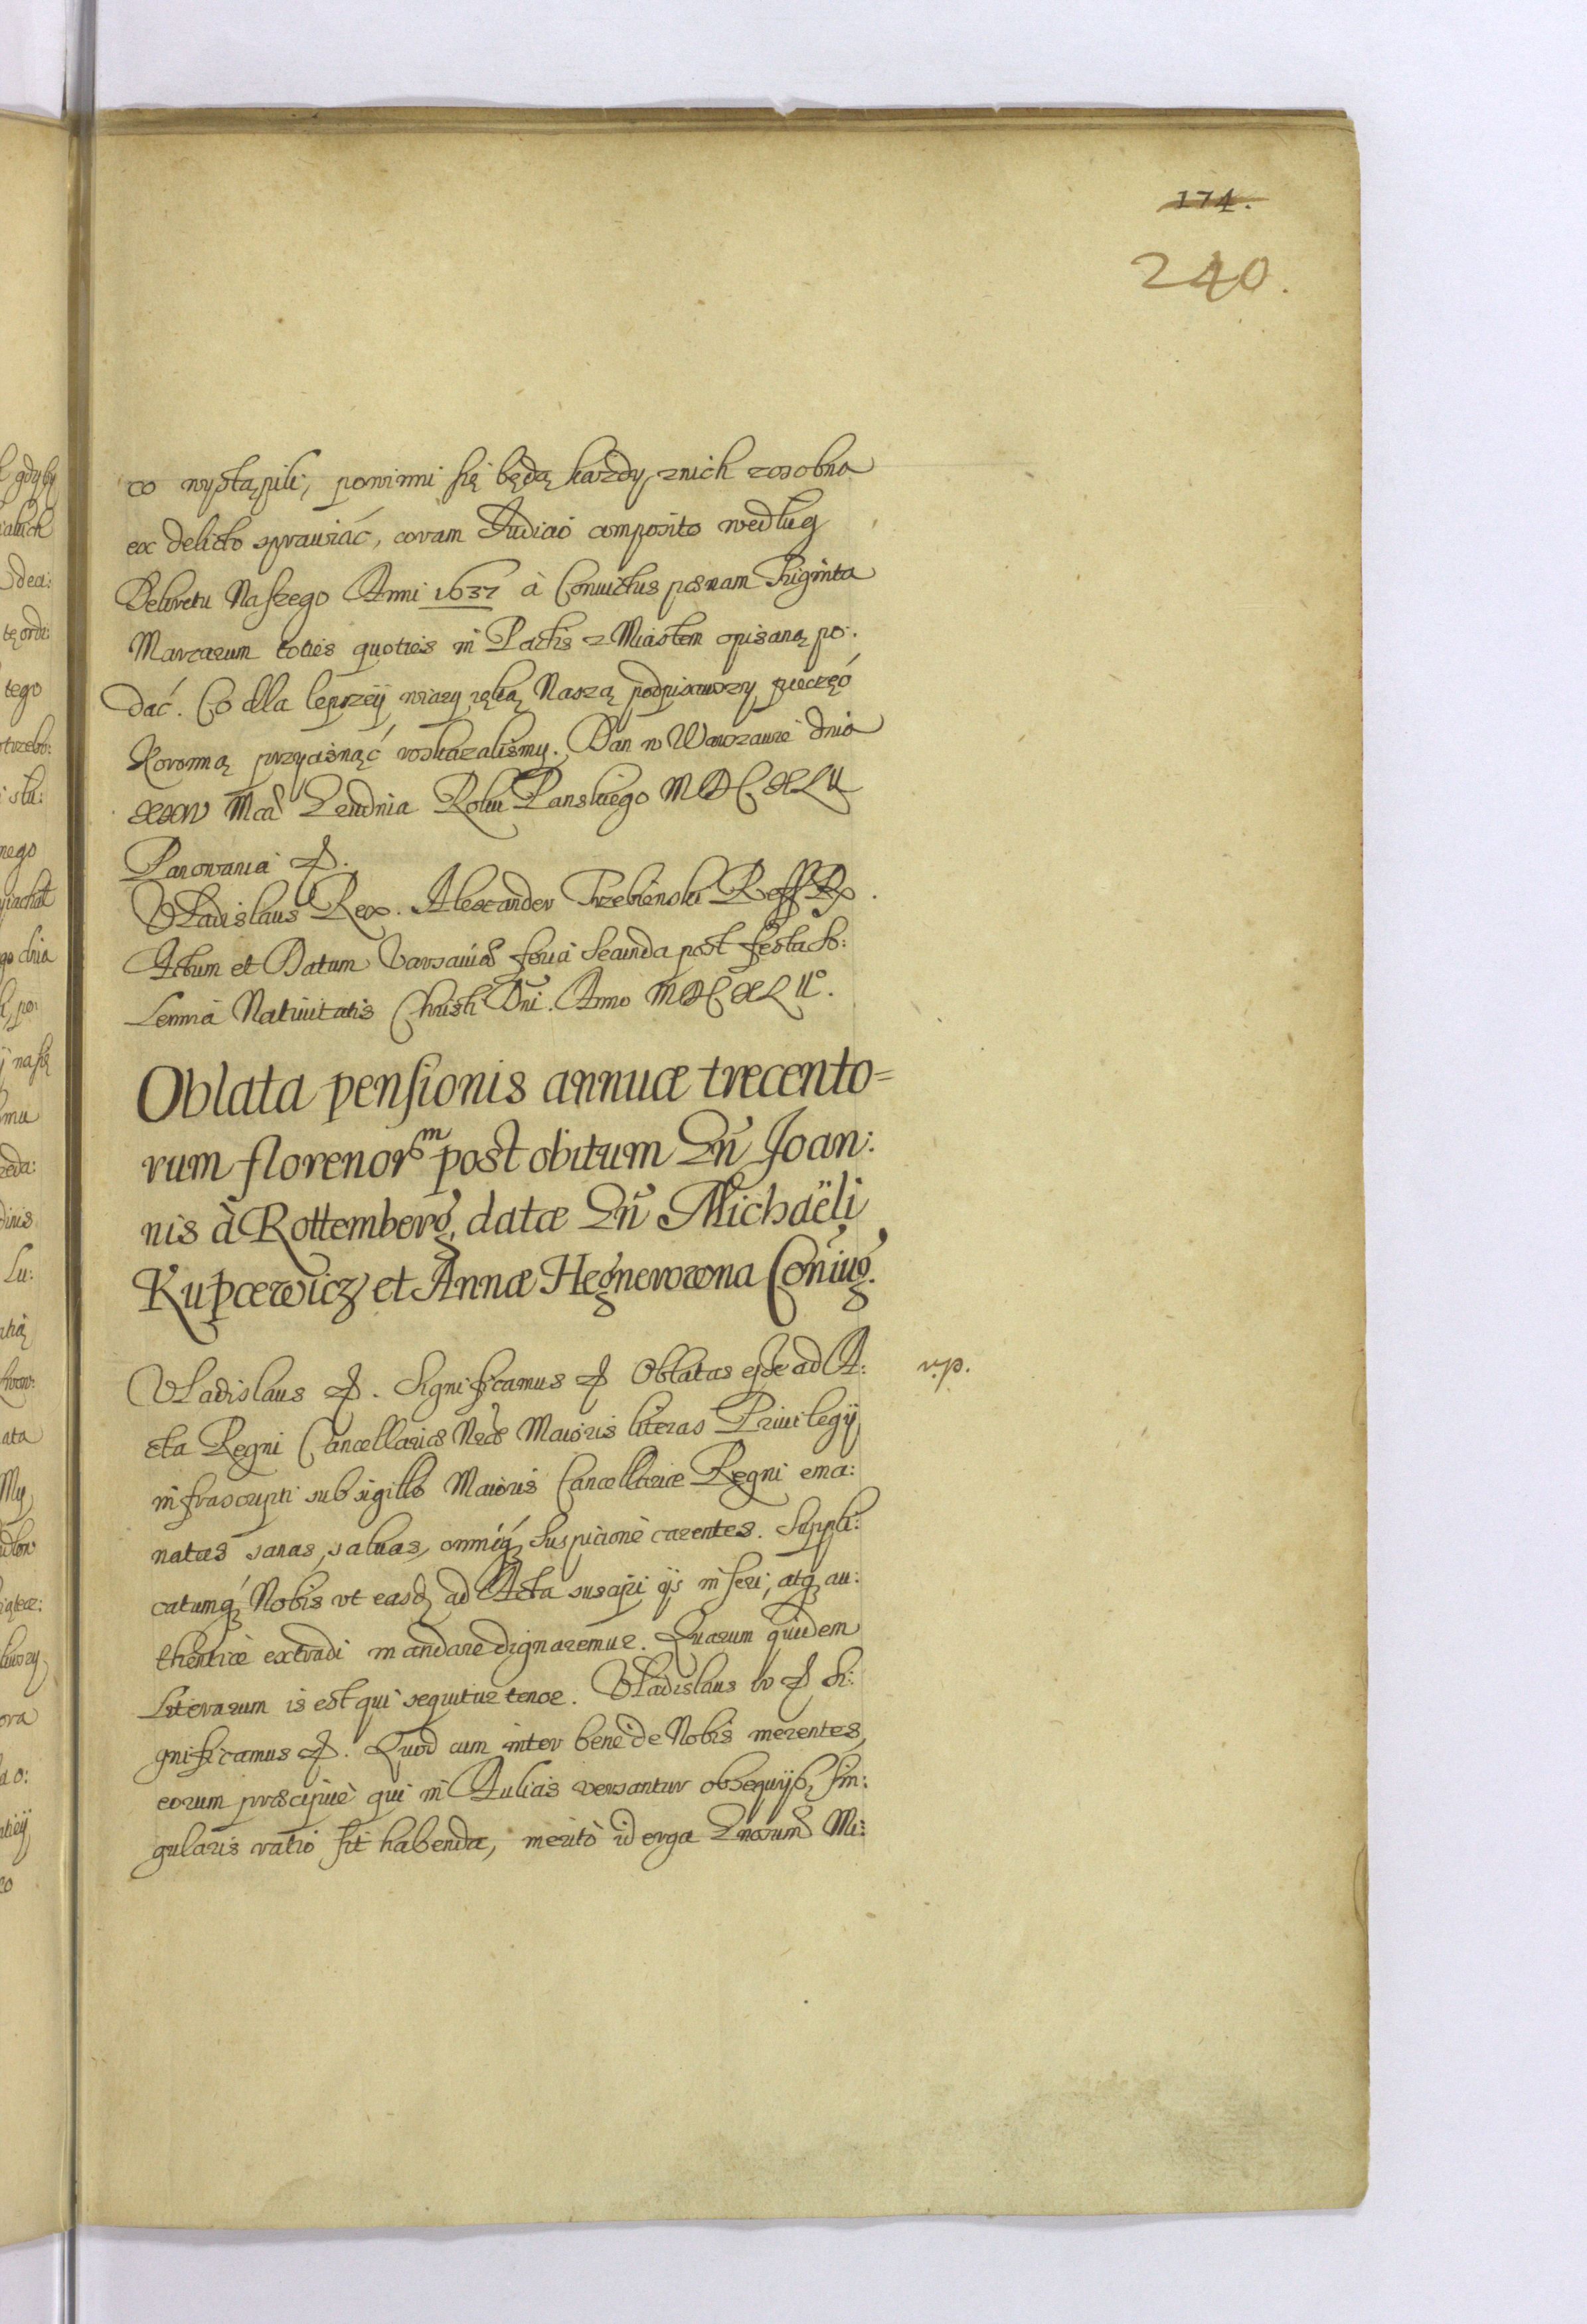 174.
240.
co wystąpili, powinni się będą każdy znich zosobna
ex delicto sprawiać, coram Judicio composito według
Dekretu Naszego Anni 1637 à Convictus pœnam Triginta
Marcarum toties quoties in Pactis z Miastem opisaną po:
dać. Co dla lepszey wiary ręką Naszą podpisawszy pieczęć
Koronną przycisnąć roskazalismy. Dan w Warszawie dnia
Mca Grudnia Roku Panskiego MDCXLII
Panowania &.
Vladislaus Rex. Alexander Trzebienski
Actum et Datum Varsaviæ feria secunda post festa So:
lennia Nativitatis Christi Dni. Anno MDCXLIIº.
Oblata pensionis annuæ trecento=
rum florenorm post obitum Gñ Joan:
nis à Rottemberg, datæ Gñ Michaëli
Kupcewicz et Annæ Hegnerowna Coniug.
Vladislaus &. Significamus & Oblatas esse ad A:
cta Regni Cancellariæ Nræ Maioris literas Privilegij
infrascripti sub sigillo Maioris Cancellariæ Regni ema:
natas sanas, salvas, omniq; suspicione carentes. Suppli:
catumq; Nobis vt easd; ad Acta suscipi ijs inseri, atq; au:
thenticè extradi mandare dignaremur. Quarum quidem
Literarum is est qui sequitur tenor. Vladislaus IV & Si:
gnificamus &. Quod cum inter bene de Nobis merentes,
eorum præcipuè qui in Aulicis versantur obsequijs, sin:
gularis ratio sit habenda, meritò id erga Gnosum Mi:
v.p.